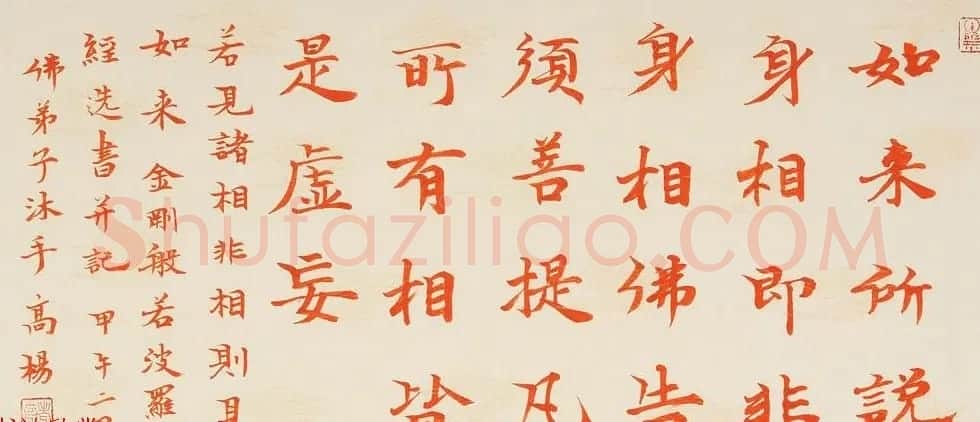 如来所説
身相即非
身相佛告
須菩提凡
所有相皆
是虚妄
若見諸相非相則見
如来金剛般若波羅
經选書并記甲午二
佛弟子沐手高楊
Shufaziliao.COM